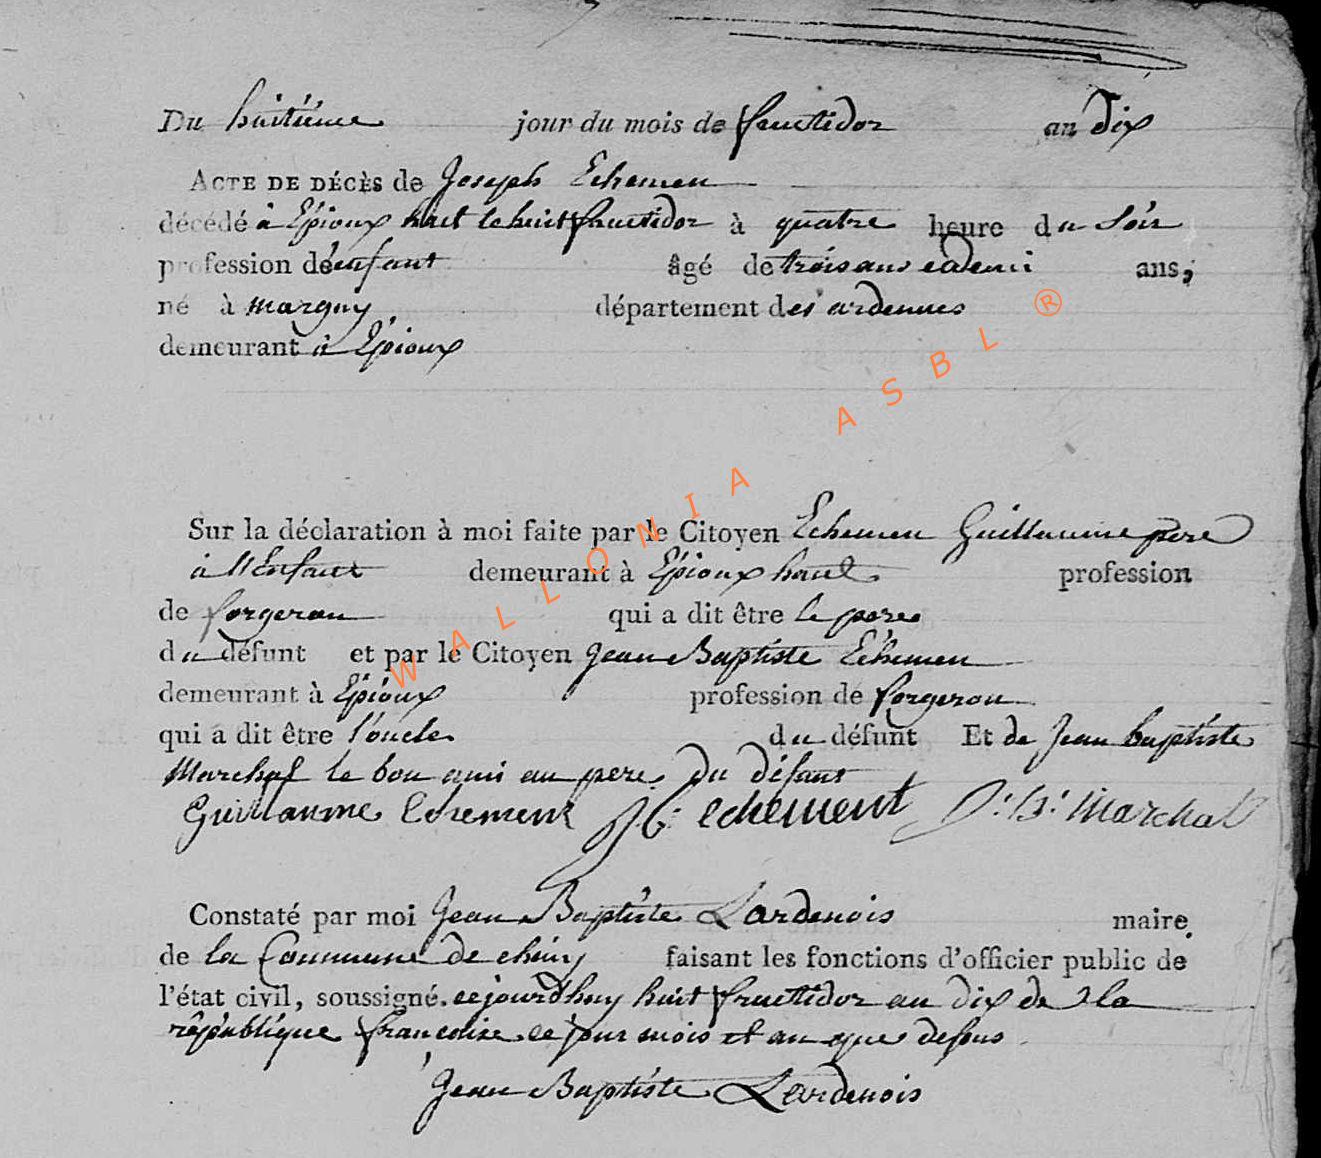 Du huitième jour du mois de fructidor an dix
ACTE DE DÉCÈS de Joseph Echemen
décédé à Epioux haut le huit fructidor à quatre heure du Soir
profession de enfant âgé de trois ans edemi ans,
né à margny département des ardennes
demeurant à Epioux
Sur la déclaration à moi faite par le Citoyen Echemen Guillaume pere
à l'Enfant demeurant à Epioux haut profession
de forgeron qui a dit être le pere
du défunt et par le Citoyen Jean Baptiste Echemen
demeurant à Epioux profession de forgeron
qui a dit être l'oncle du défunt Et de Jean baptiste
Marchal le bon ami au pere du défant
Guillaume Echement JB: echement J: B: Marchal
Constaté par moi Jean Baptiste Lardenois maire
de la Commune de chiny faisant les fonctions d'officier public de
l'état civil, soussigné. cejourdhuy huit fructidor an dix de la
république francoise le jour mois et an que desus
Jean Baptiste Lardenois
WALLONIA ASBL ®